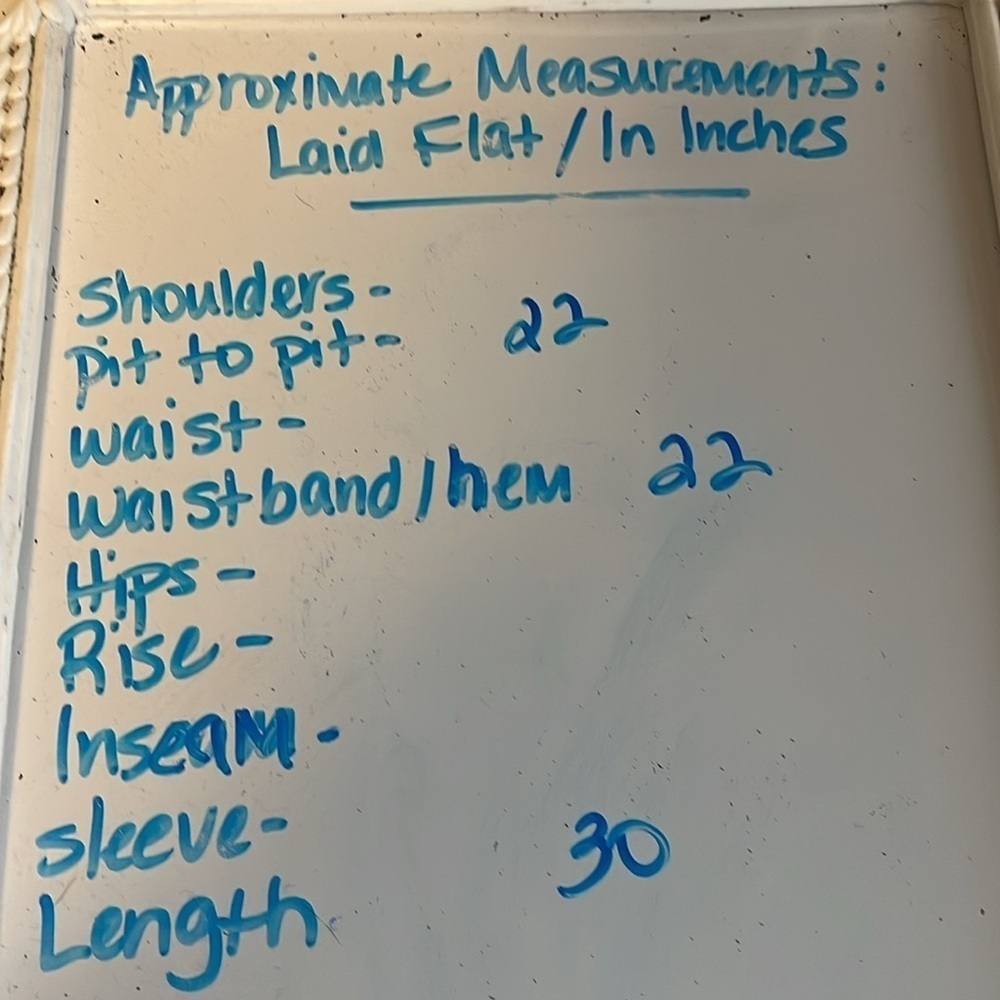 Approximate Measurements:
Laid Flat / In Inches
Shoulders -
pit to pit - 22
waist -
waistband / hem 22
Hips -
Rise -
Inseam -
sleeve -
Length 30